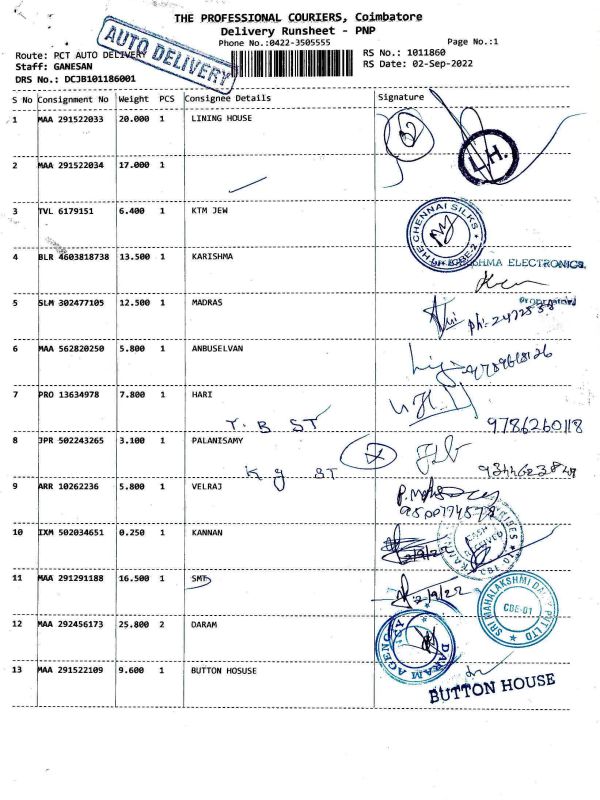 THE PROFESSIONAL COURIERS, Coimbatore
Delivery Runsheet - PNP
Phone No.:0422-3505555
Page No.:1
AUTO DELIVERY
Route: PCT AUTO DELIVERY
RS No.: 1011860
Staff: GANESAN
RS Date: 02-Sep-2022
DRS No.: DCJB101186001
S No Consignment No Weight PCS Consignee Details Signature
1 MAA 291522033 20.000 1 LINING HOUSE
L.H.
2 MAA 291522034 17.000 1
3 TVL 6179151 6.400 1 KTM JEW
THE CHENNAI SILKS
CBE-2
4 BLR 4603818738 13.500 1 KARISHMA
ELECTRONICS
5 SLM 302477105 12.500 1 MADRAS
6 MAA 562820250 5.800 1 ANBUSELVAN
7 PRO 13634978 7.800 1 HARI
T. B ST
9786260118
8 JPR 502243265 3.100 1 PALANISAMY
K g ST
9 ARR 10262236 5.800 1 VELRAJ
10 IXM 502034651 0.250 1 KANNAN
2/9/22
11 MAA 291291188 16.500 1 SMT
2/9/22
SRI MAHALAKSHMI
PVT LTD
CBE-01
12 MAA 292456173 25.800 2 DARAM
DARAM AGENCY
13 MAA 291522109 9.600 1 BUTTON HOSUSE
BUTTON HOUSE